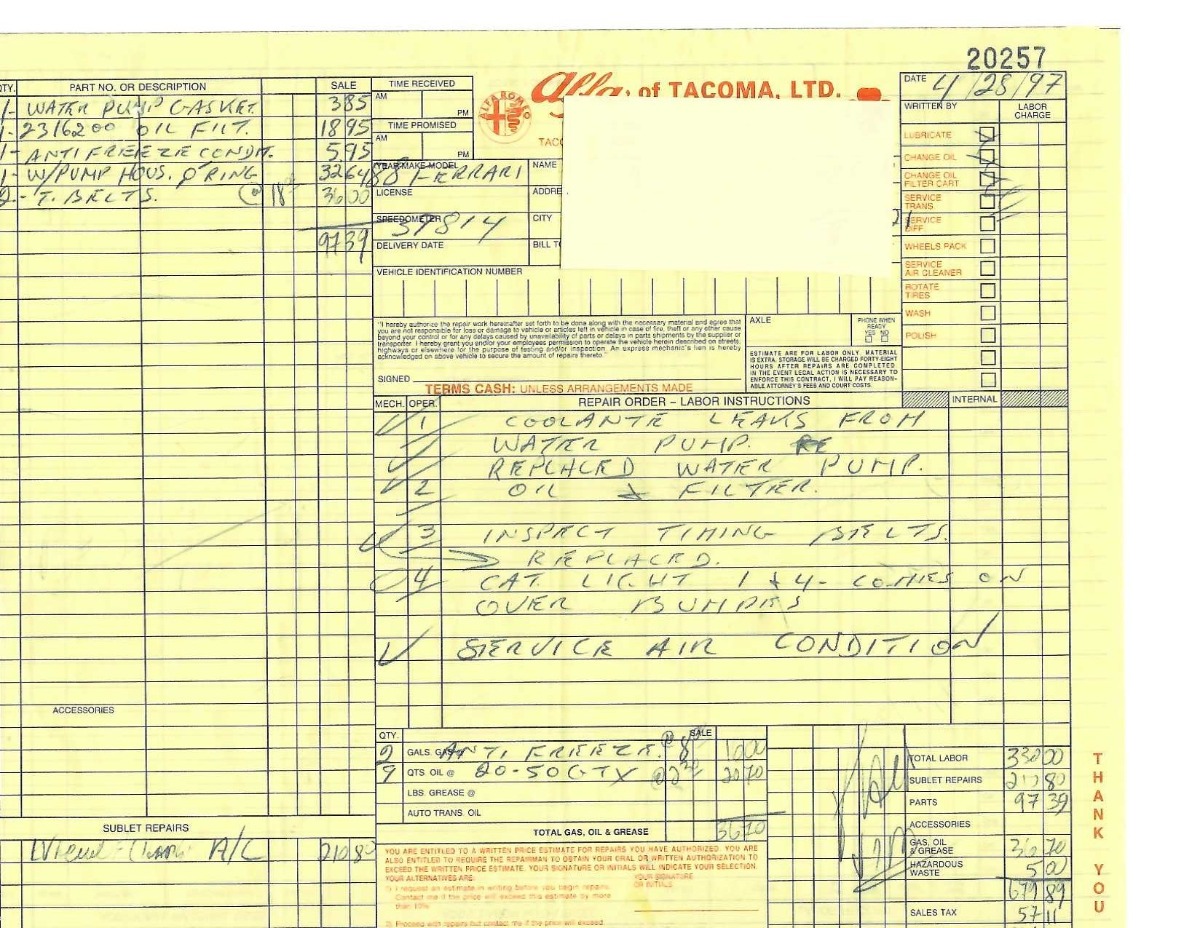 20257
Alfa of TACOMA, LTD.
ALFA ROMEO
TACO
DATE 4/28/97
WRITTEN BY LABOR CHARGE
LUBRICATE
CHANGE OIL
CHANGE OIL FILTER CART
SERVICE TRANS
SERVICE DIFF.
WHEELS PACK
SERVICE AIR CLEANER
ROTATE TIRES
WASH
POLISH
QTY. PART NO. OR DESCRIPTION SALE
1- WATER PUMP GASKET. 3 85
1- 2316200 OIL FILT. 18 95
1- ANTIFREEZE CONDIT. 5 95
1- W/PUMP HOUS. O'RING 32 64
2- T. BELTS. @ 18 36 00
97 39
TIME RECEIVED
AM
PM
TIME PROMISED
AM
PM
YEAR-MAKE-MODEL
88 FERRARI
NAME
LICENSE
ADDRE
SPEEDOMETER
37814
CITY
DELIVERY DATE
BILL T
VEHICLE IDENTIFICATION NUMBER
"I hereby authorize the repair work hereinafter set forth to be done along with the necessary material and agree that
you are not responsible for loss or damage to vehicle or articles left in vehicle in case of fire, theft or any other cause
beyond your control or for any delays caused by unavailability of parts or delays in parts shipments by the supplier or
transporter. I hereby grant you and/or your employees permission to operate the vehicle herein described on streets,
highways or elsewhere for the purpose of testing and/or inspection. An express mechanic's lien is hereby
acknowledged on above vehicle to secure the amount of repairs thereto."
SIGNED
TERMS CASH: UNLESS ARRANGEMENTS MADE
AXLE
PHONE WHEN READY
YES NO
ESTIMATE ARE FOR LABOR ONLY. MATERIAL
IS EXTRA. STORAGE WILL BE CHARGED FORTY-EIGHT
HOURS AFTER REPAIRS ARE COMPLETED
IN THE EVENT LEGAL ACTION IS NECESSARY TO
ENFORCE THIS CONTRACT, I WILL PAY REASON-
ABLE ATTORNEY'S FEES AND COURT COSTS.
MECH. OPER. REPAIR ORDER – LABOR INSTRUCTIONS INTERNAL
1 COOLANTE LEAKS FROM
WATER PUMP. RE
REPLACED WATER PUMP.
2 OIL & FILTER.
3 INSPECT TIMING BELTS.
REPLACED.
4 CAT. LIGHT 1 & 4 - COMES ON
OVER BUMPES
SERVICE AIR CONDITION
ACCESSORIES
SUBLET REPAIRS
A/C 210 80
QTY. SALE
2 GALS. GAS @ ANTI FREEZE. @ 8
9 QTS. OIL @ 20-50 GTX 20 70
LBS. GREASE @
AUTO TRANS. OIL
TOTAL GAS, OIL & GREASE 36 70
YOU ARE ENTITLED TO A WRITTEN PRICE ESTIMATE FOR REPAIRS YOU HAVE AUTHORIZED. YOU ARE
ALSO ENTITLED TO REQUIRE THE REPAIRMAN TO OBTAIN YOUR ORAL OR WRITTEN AUTHORIZATION TO
EXCEED THE WRITTEN PRICE ESTIMATE. YOUR SIGNATURE OR INITIALS WILL INDICATE YOUR SELECTION.
YOUR ALTERNATIVES ARE:
YOUR SIGNATURE OR INITIALS
1) I request an estimate in writing before you begin repairs.
Contact me if the price will exceed this estimate by more
than 10%.
2) Proceed with repairs but contact me if the price will exceed
TOTAL LABOR 330 00
SUBLET REPAIRS 210 80
PARTS 97 39
ACCESSORIES
GAS, OIL & GREASE 36 70
HAZARDOUS WASTE 5 00
679 89
SALES TAX 57 11
THANK YOU